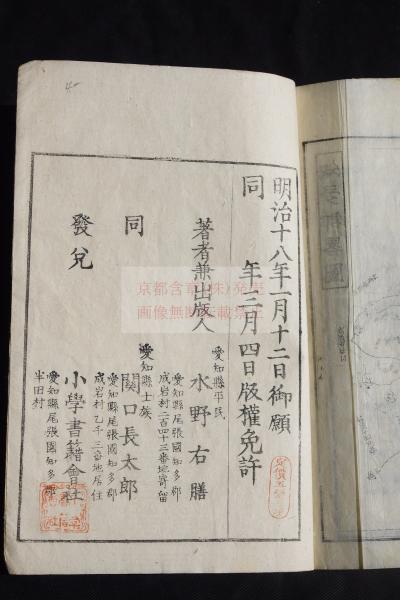 明治十八年一月十二日御願
同　年三月四日版權免許
著者兼出版人
愛知縣平民
水野右膳
愛知縣尾張國知多郡
成岩村二百四十三番地寄留
同
愛知縣士族
関口長太郎
愛知縣尾張國知多郡
成岩村乙千三番地居住
發兌
小學書籍會社
愛知縣尾張國知多郡
半田村
京都含書(株)発売
画像無断転載禁止